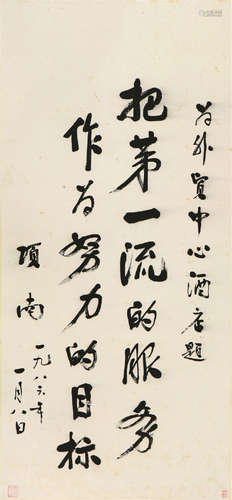 为外贸中心酒店题
把第一流的服务
作为努力的目标
项南
一九八六年
一月八日